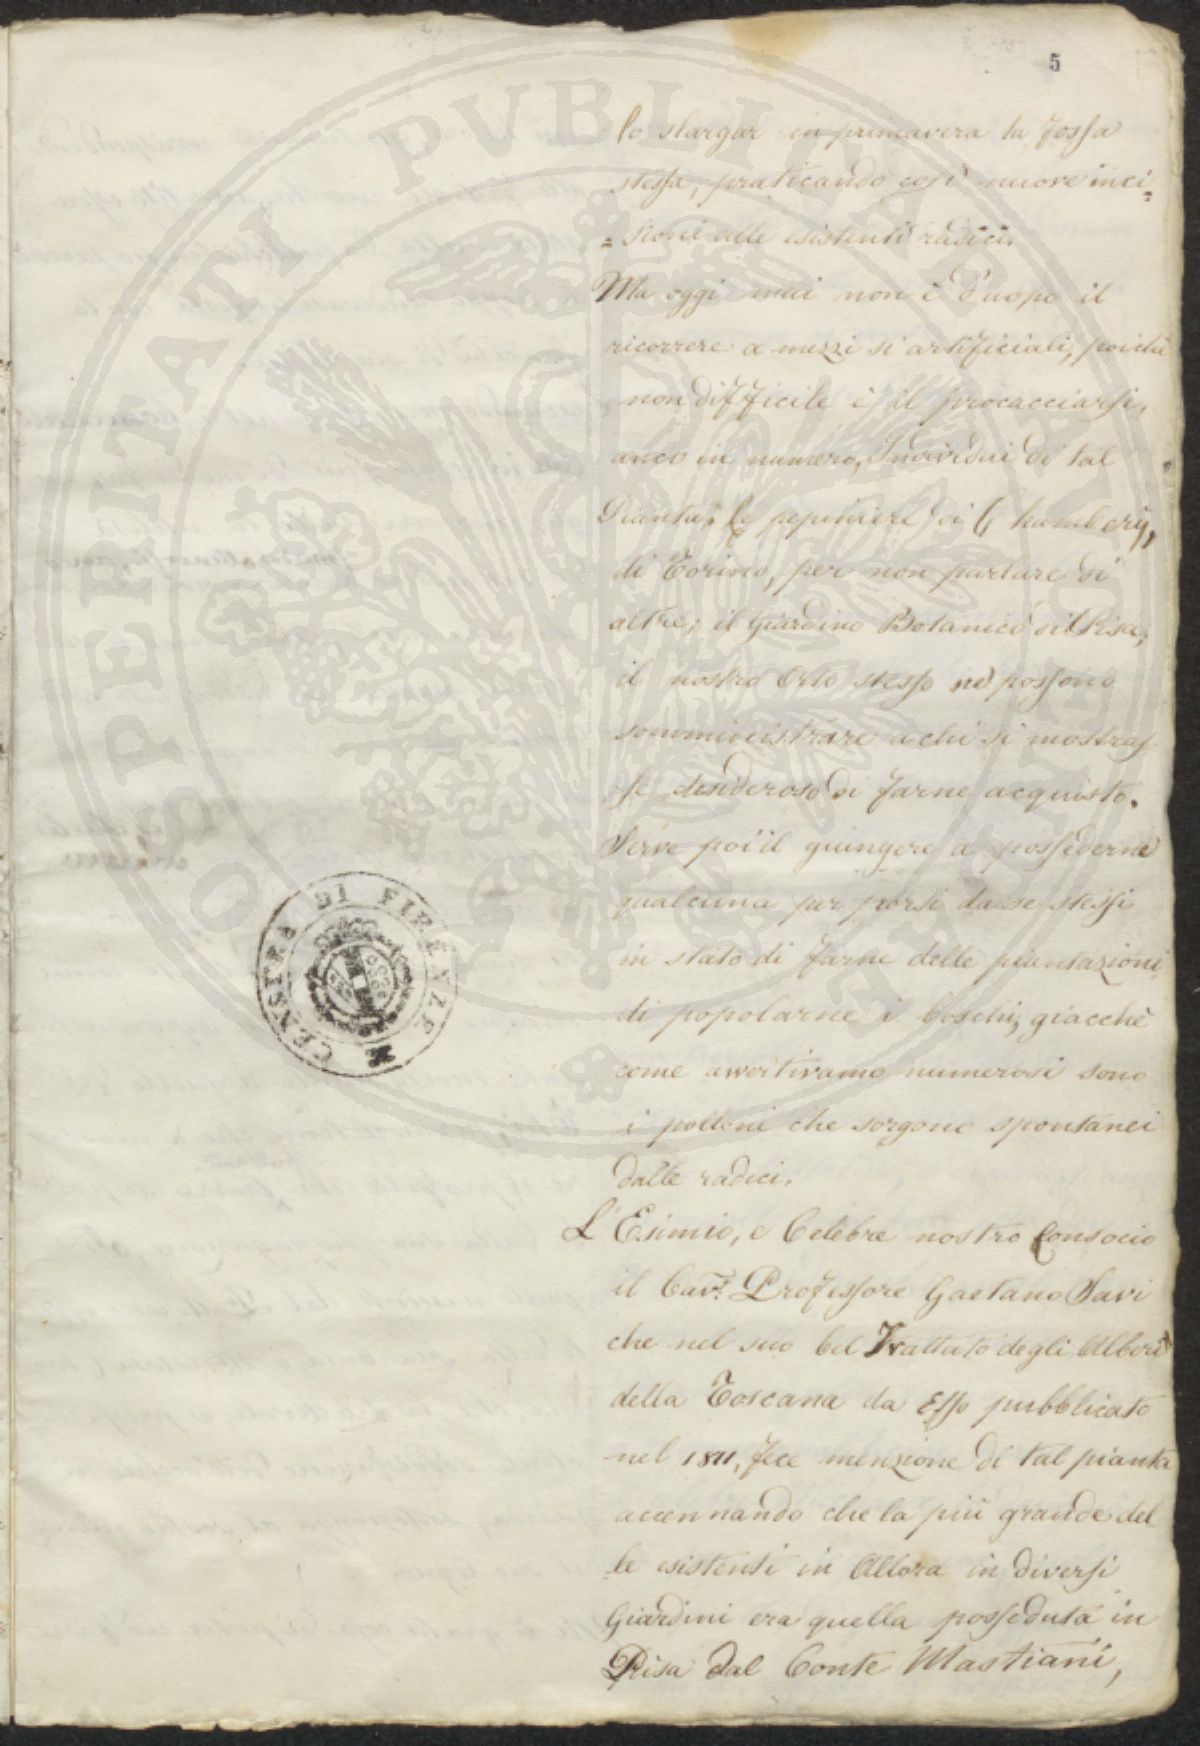 5
lo slargar in primavera la fossa
stessa, praticando così nuove inci=
=sioni alle esistenti radici.
Ma oggi mai non è d'uopo il
ricorrere a mezzi sì artificiali, poichè
non difficile è il procacciarsi,
anco in numero, Individui di tal
Pianta; le pepiniere di Chambery,
di Torino, per non parlare di
altre; il Giardino Botanico di Pisa,
il nostro Orto stesso ne possono
somministrare a chi si mostras
se desideroso di farne acquisto.
Serve poi il giungere a possederne
qualcuna per porsi da se stessi
in stato di farne delle piantazioni
di popolarne i boschi, giacchè
come avvertivamo numerosi sono
i polloni che sorgono spontanei
dalle radici.
L'Esimio, e Celebre nostro Consocio
il Cav.^r Professore Gaetano Savi
che nel suo bel Trattato degli Alberi
della Toscana da Esso pubblicato
nel 1811, fece menzione di tal pianta
accennando che la più grande del
le esistenti in Allora in diversi
Giardini era quella posseduta in
Pisa dal Conte Mastiani,
CENSIER DI FIRENZE
OSPERITATI PUBLICAE AUGENDAE